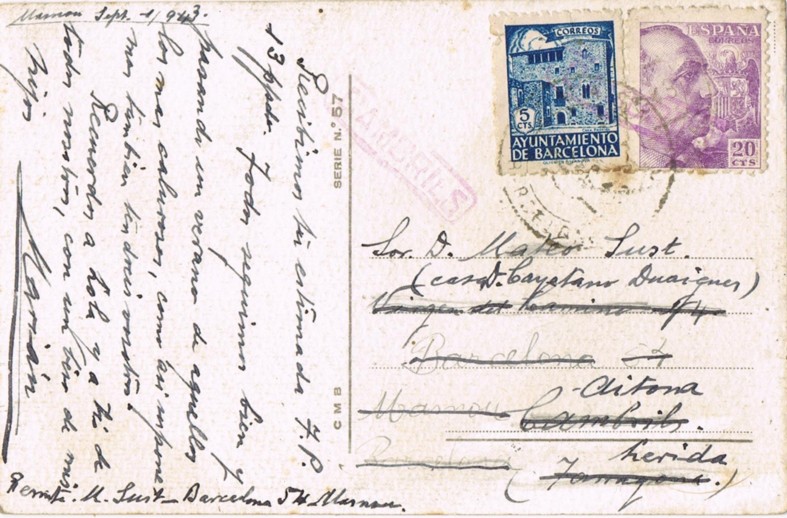 Masnou Sept. 1/943.
Recibimos tu estimada T. P.
13 ppdo. Todos seguimos bien y
pasando un verano de aquellos
los mas calurosos, como asi
nos tambien tendreis vosotros.
Recuerdos a Lola y a ti de
todos nosotros, con un de mis
hijos
Remite. M. Sust Barcelona 54 Masnou.
SERIE N.º 57
C M B
CAMBRILS
CORREOS
5
CTS
AYUNTAMIENTO
DE BARCELONA
ESPAÑA
CORREOS
20
CTS
Sor. D. Mateo Sust.
(casa D. Cayetano Duaigues)
Virgen del Camino 14
Barcelona
Aitona
Masnou Cambrils
Barcelona Lerida
(Tarragona.)